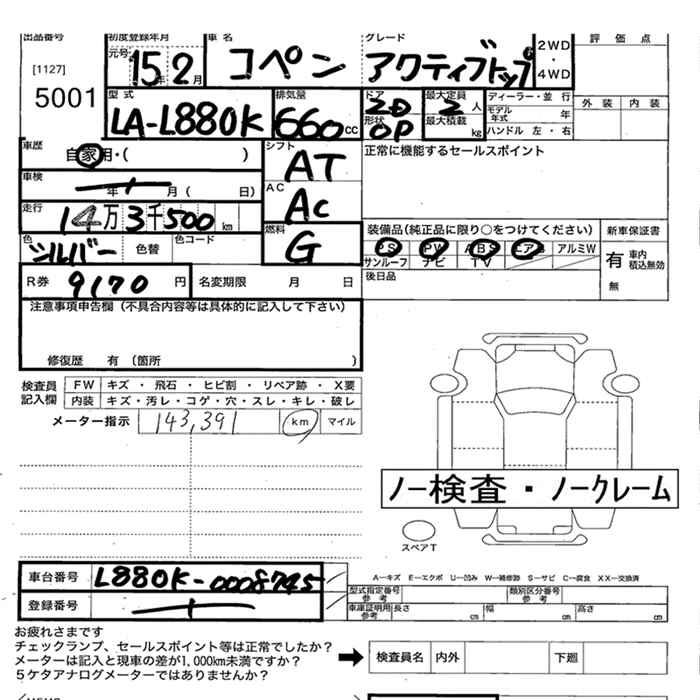 出品番号 初度登録年月 車名 グレード 評価点
[1127] 元号 15年 2月 コペン アクティブトップ 2WD・4WD
5001 型式 LA-L880K 排気量 660cc ドア 2D 形状 OP 最大定員 2人 最大積載 kg ディーラー・並行 モデル年式 年 ハンドル 左・右 外装 内装
車歴 自家用・( ) シフト AT 正常に機能するセールスポイント
車検 年 月 ( 日) AC AC
走行 14万3千500km 燃料 G 装備品(純正品に限り○をつけてください) 新車保証書
色 シルバー 色替 色コード PS PW ABS エアB アルミW 有 車内積込無効
サンルーフ ナビ TV 無
R券 9170円 名変期限 月 日 後日品
注意事項申告欄(不具合内容等は具体的に記入して下さい)
修復歴 有(箇所 )
検査員記入欄 FW キズ・飛石・ヒビ割・リペア跡・X要
内装 キズ・汚レ・コゲ・穴・スレ・キレ・破レ
メーター指示 143,391 km マイル
ノー検査・ノークレーム
スペアT
車台番号 L880K-0008745 A-キズ E-エクボ U-凹み W-補修跡 S-サビ C-腐食 XX-交換済
登録番号 型式指定番号 参考 類別区分番号 参考
車庫証明用参考 長さ cm 幅 cm 高さ cm
お疲れさまです
チェックランプ、セールスポイント等は正常でしたか?
メーターは記入と現車の差が1,000km未満ですか? 検査員名 内外 下廻
5ケタアナログメーターではありませんか?